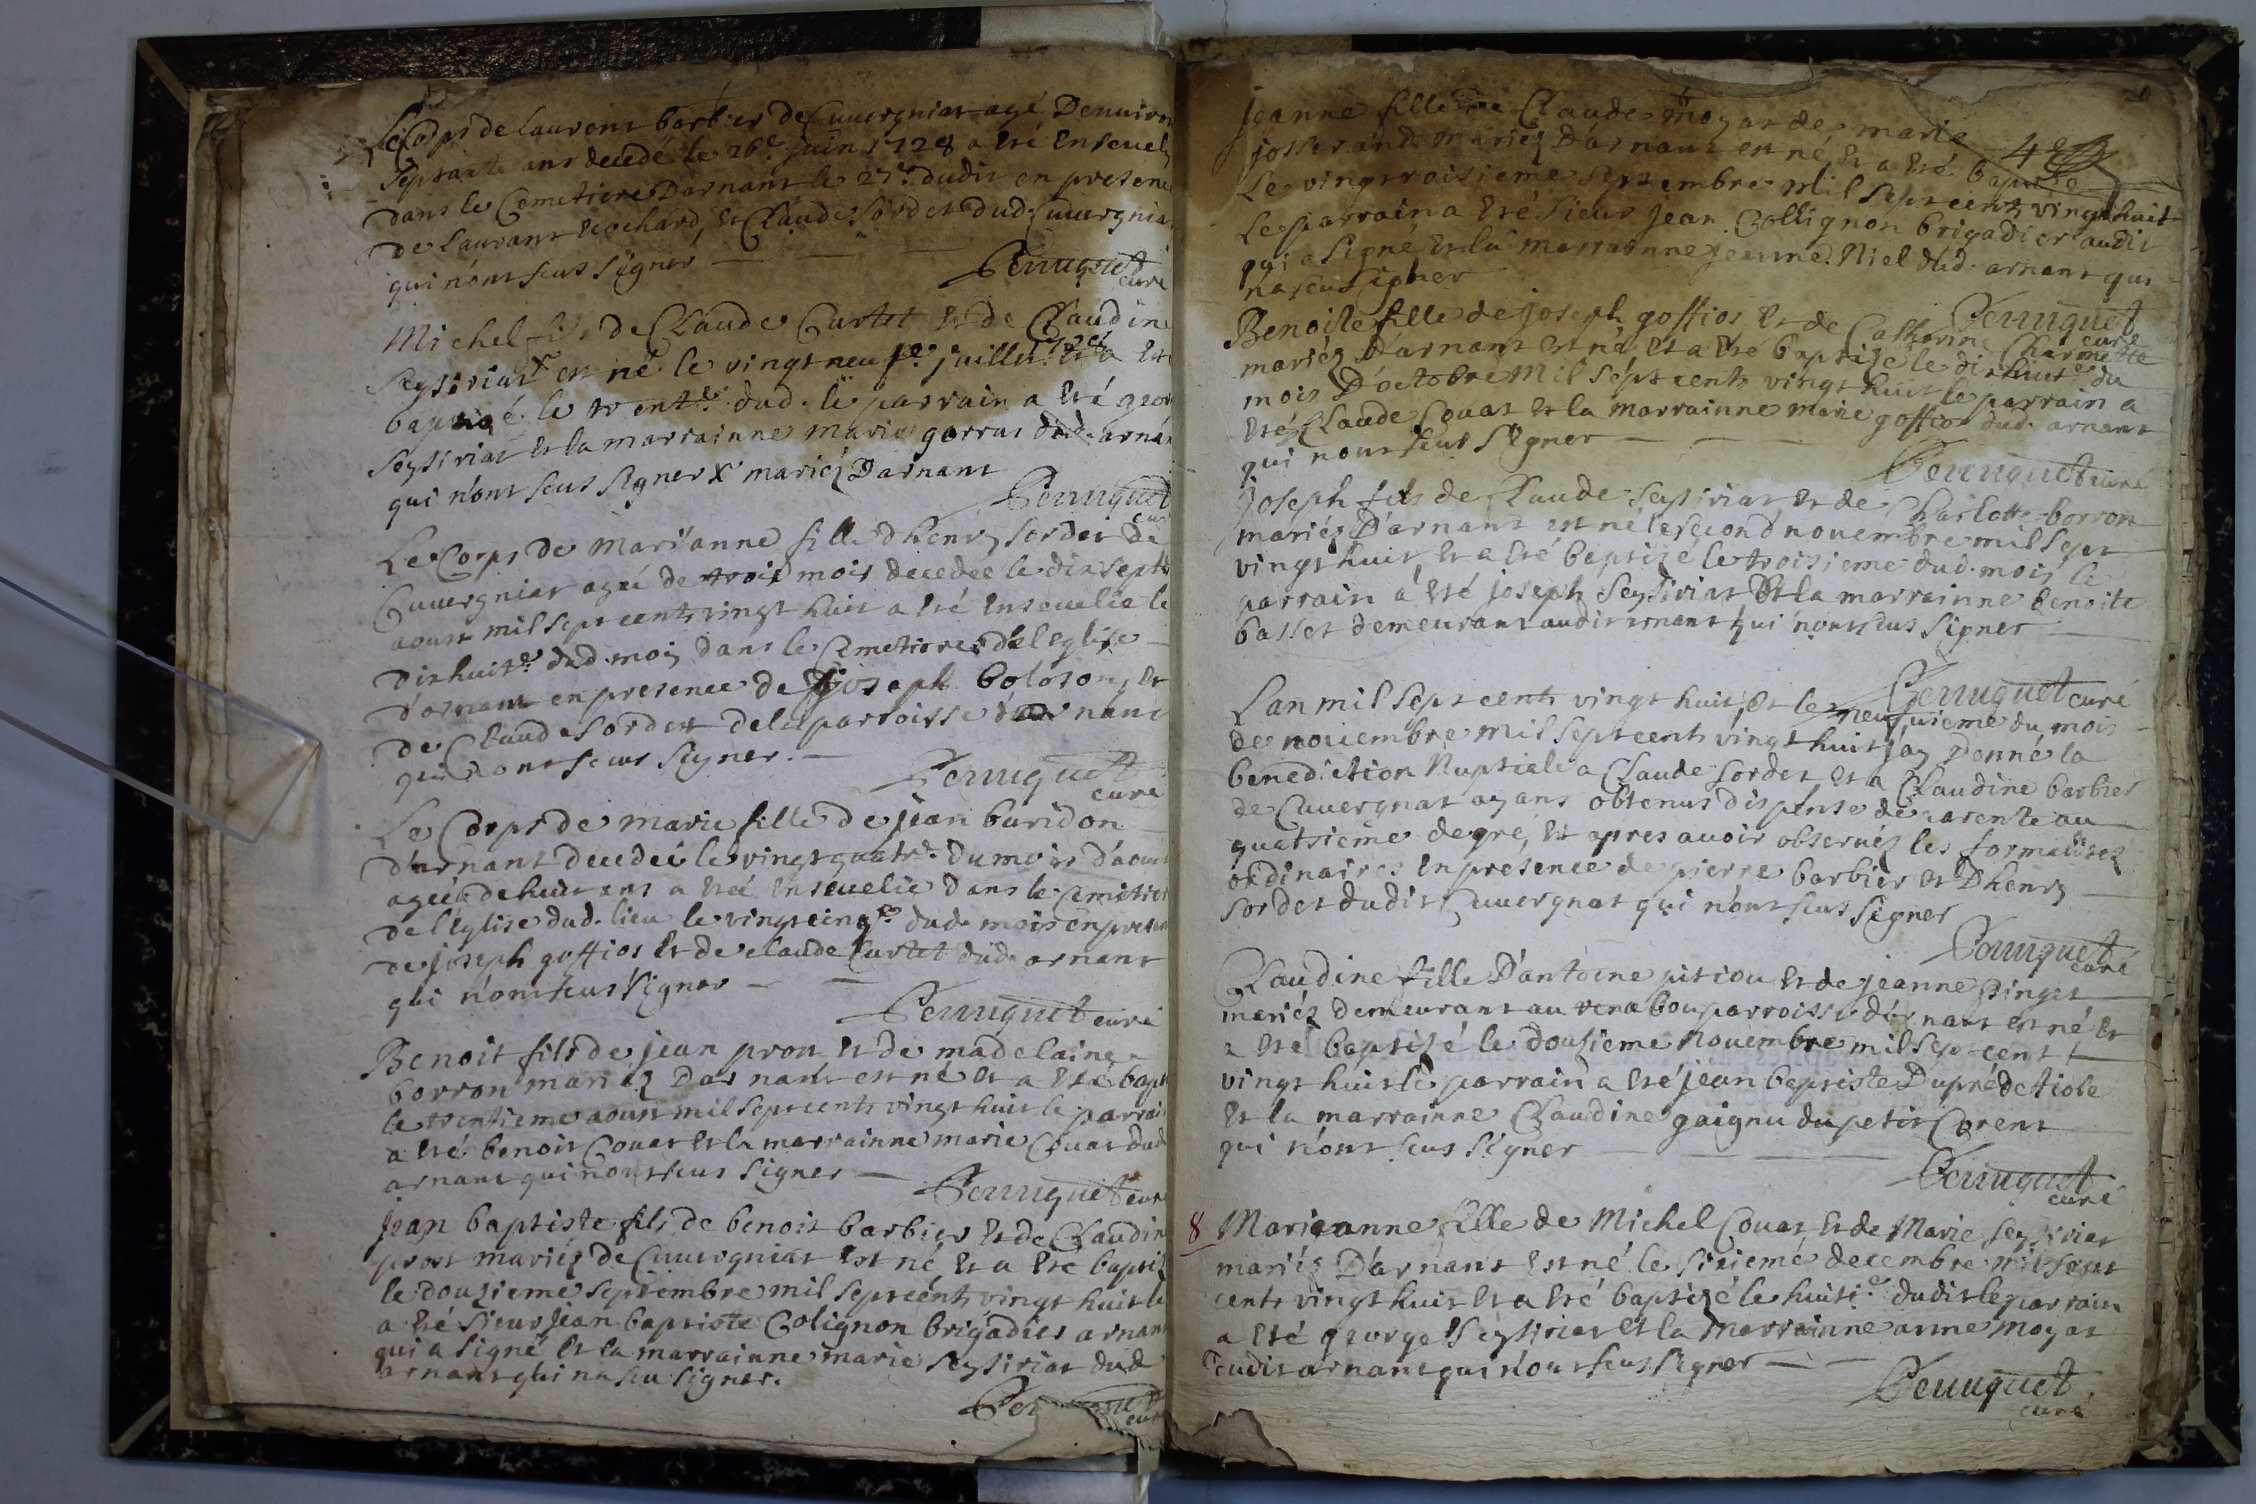 Le Corps de laurent barbier de Cuvergniat agé Denviron
septante ans decedé le 26e. juin 1728 a eté Enseveli
dans le Cemetiere Darnant le 27e. dudit en presence
de laurant bochard, et Claude Sordet dud. Cuvergniat
qui n'ont seus signer
Perruquet
curé
Michel fils de Claude Curtet et de Claudine
Seysiriat x est né le vingt neufe. juillet 1728 et a eté
baptizé le trente. dud. le parrain a eté george
Seysiriat et la marrainne marie gorrat dud. arnant
qui n'ont seus signer x mariéz Darnant
Perruquet
curé
Le Corps de Marianne fille dhenry Sordet de
Cuvergniat ageé de trois mois decedeé le dix septe
aoust mil sept cents vingt huit a eté ensevelie le
dixhuite. dud. mois dans le Cemetiere de l'eglise
d'arnant en presence de joseph boloson, et
de Claude Sordet de la parroisse d'arnant
qui n'ont seus signer.
Perruquet
curé
Le Corps de marie fille de jean buridon
d'arnant decedeé le vingt quatre. du mois d'aoust
ageé de huit ans a eté ensevelie dans le Cemetiere
de l'eglise dud. lieu le vingt cinqe. dud. mois en presence
de joseph goffios et de claude Curtet dud. arnant
qui n'ont seus signer
Perruquet curé
Benoit fils de jean prost et de madelaine
borron mariéz Darnant est né et a eté bapt
le trentieme aoust mil sept cents vingt huit le parrain
a eté benoit Couat et la marrainne marie Couat dud
arnant qui n'ont seus signer
Perruquet curé
jean baptiste fils de benoit barbier et de Claudine
prost mariéz de Cuvergniat est né et a eté baptizé
le douzieme septembre mil sept cents vingt huit le
a eté sieur jean baptiste Colignon brigadier arnant
qui a signé et la marrainne marie Seysiriat dud
arnant qui na seu signer.
Per
curé
jeanne fille de Claude moyat de marie
josserand mariéz D'arnant est né et a eté baptizé
Le vingt roisieme septembre mil sept cents vingt huit
Le parrain a eté sieur jean Collignon brigadier audit
qui a signé et la marrainne jeanne Niel dud. arnant qui
na seu signer
Perruquet
curé
Benoite fille de joseph goffios et de Catherine Charmette
mariéz Darnant est né et a eté baptizé le dixhuite du
mois D'octobre mil sept cents vingt huit le parrain a
eté Claude Couat et la marrainne marie goffios dud. arnant
qui n'ont seus signer
Perruquet curé
joseph fils de Claude Seysiriat, et de Charlotte borron
mariéz D'arnant est né le second novembre mil sept
vingt huit, et a eté baptizé le troisieme dud. mois le
parrain a eté joseph Seysiriat et la marrainne benoite
basset demeurant audit arnant qui n'ont seus signer
Perruquet curé
Lan mil sept cents vingt huit, et le neufvieme du mois
de novembre mil sept cents vingt huit j'ay Donné la
benediction Nuptiale a Claude Sordet et a Claudine barbier
de Cuvergnat ayans obtenus dispense de parente au
quatrieme degré, et apres avoir observéz les formalitez
ordinaires en presence de pierre barbier et Dhenry
Sordet dudit Cuvergnat qui n'ont seus signer
Perruquet
curé
Claudine fille D'antoine pitiou et de jeanne pinget
mariéz demeurant au parroisse d'arnant est né et
a eté baptizé le douzieme Novembre mil sept cent
vingt huit le parrain a eté jean baptiste Dupré de fiole
et la marrainne Claudine gaignu du petit Corent
qui n'ont seus signer
Perruquet
curé
8 Marieanne fille de Michel Couat, et de Marie Seysiriat
mariéz D'arnant est né le sixieme decembre mil sept
cents vingt huit et a eté baptizé le huitie. dudit le parrain
a eté george Seysiriat et la marrainne anne moyat
dudit arnant qui n'ont seus signer
Perruquet
curé